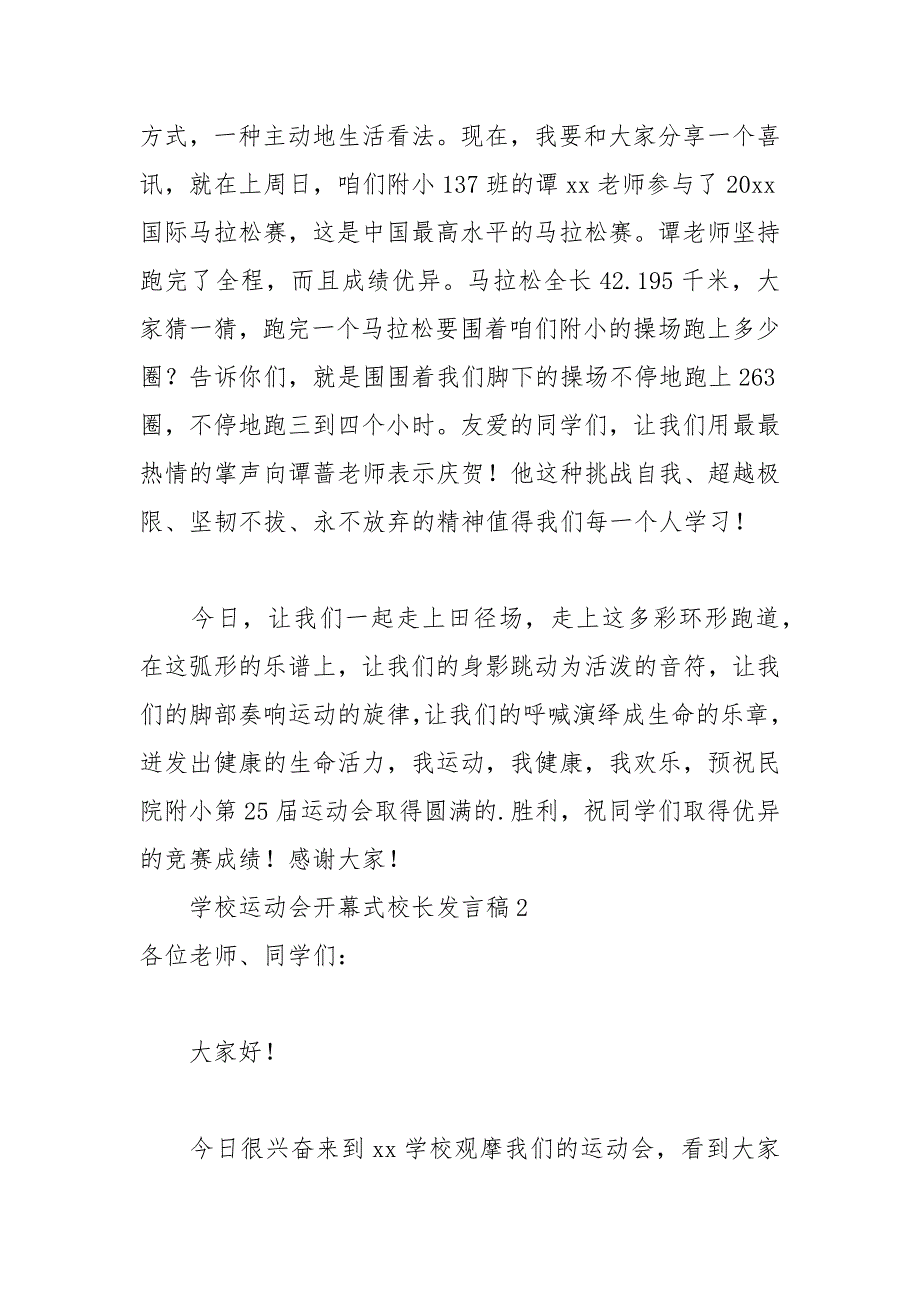 方式，一种主动地生活看法。现在，我要和大家分享一个喜
讯，就在上周日，咱们附小 137 班的谭 xx 老师参与了 20xx
国际马拉松赛，这是中国最高水平的马拉松赛。谭老师坚持
跑完了全程，而且成绩优异。马拉松全长 42.195 千米，大
家猜一猜，跑完一个马拉松要围着咱们附小的操场跑上多少
圈？告诉你们，就是围围着我们脚下的操场不停地跑上 263
圈，不停地跑三到四个小时。友爱的同学们，让我们用最最
热情的掌声向谭蔷老师表示庆贺！他这种挑战自我、超越极
限、坚韧不拔、永不放弃的精神值得我们每一个人学习！
今日，让我们一起走上田径场，走上这多彩环形跑道，
在这弧形的乐谱上，让我们的身影跳动为活泼的音符，让我
们的脚部奏响运动的旋律，让我们的呼喊演绎成生命的乐章，
迸发出健康的生命活力，我运动，我健康，我欢乐，预祝民
院附小第 25 届运动会取得圆满的.胜利，祝同学们取得优异
的竞赛成绩！感谢大家！
学校运动会开幕式校长发言稿 2
各位老师、同学们：
大家好！
今日很兴奋来到 xx 学校观摩我们的运动会，看到大家